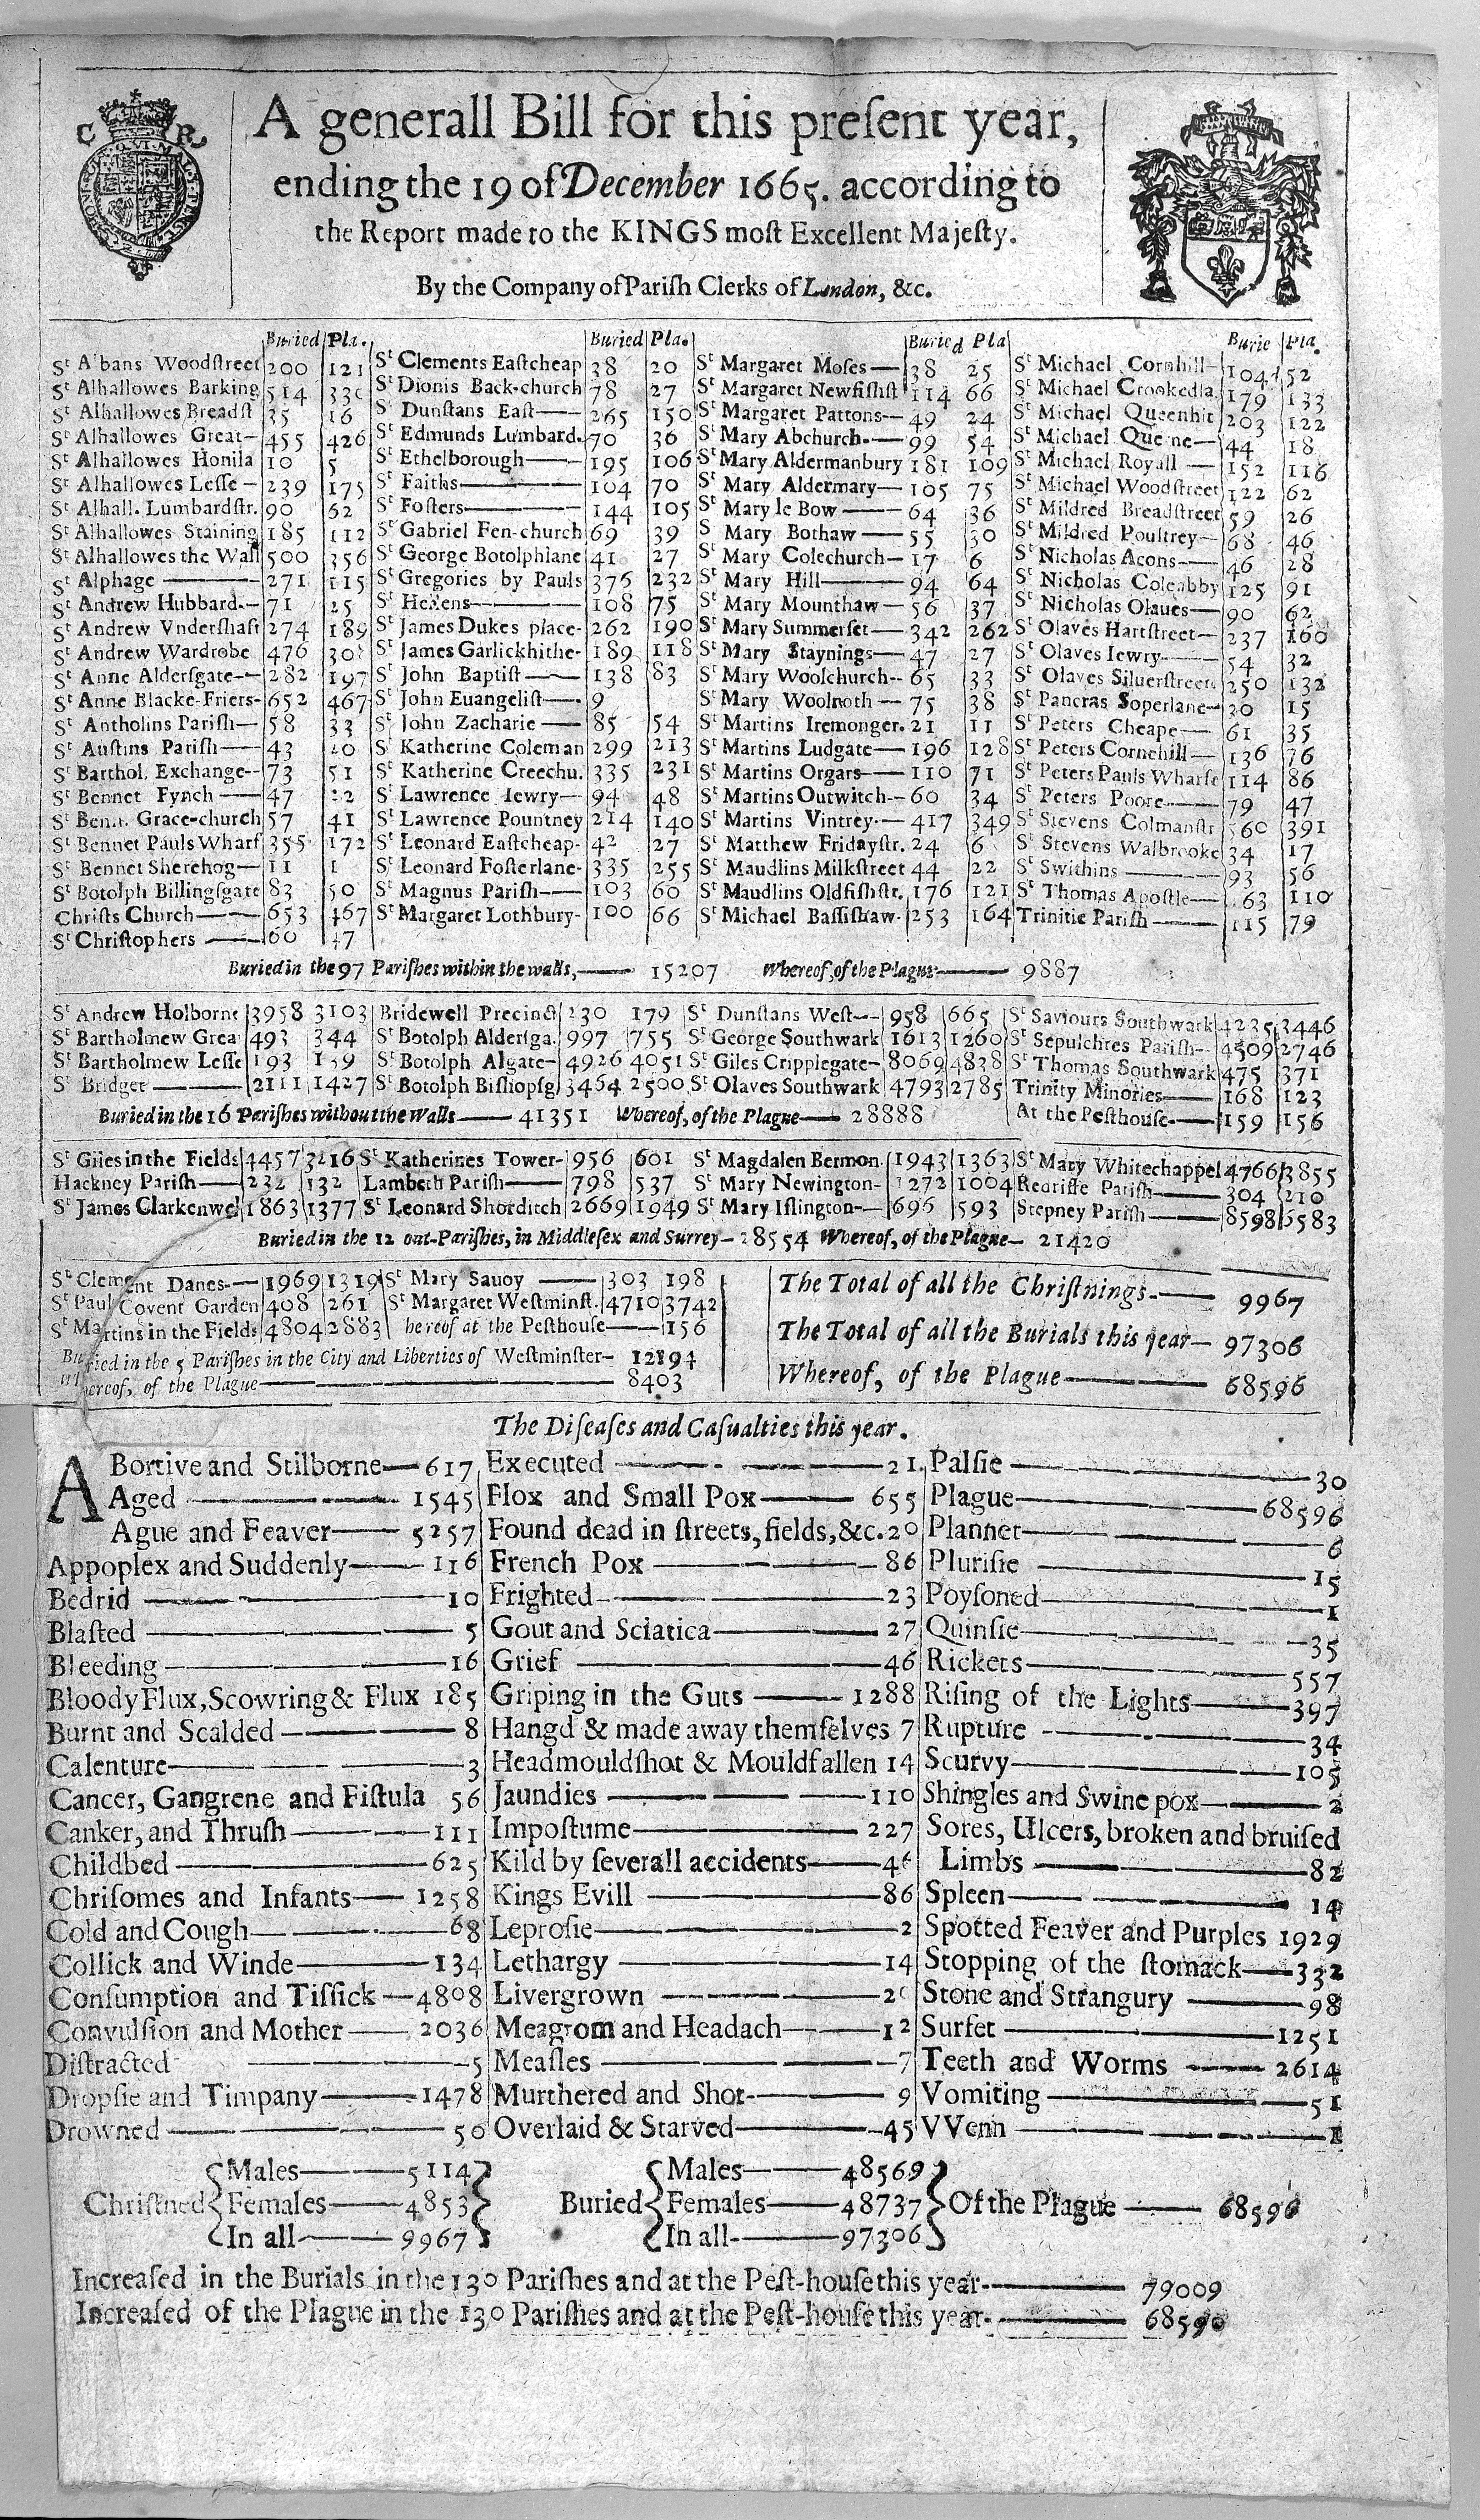 C R
A generall Bill for this preſent year,
ending the 19 of December 1665. according to
the Report made to the KINGS moſt Excellent Majeſty.
By the Company of Pariſh Clerks of London, &c.
Buried Pla. Buried Pla. Buried Pla Burie Pla.
St Albans Woodſtreet 200 121 St Clements Eaſtcheap 38 20 St Margaret Moſes— 38 25 St Michael Cornhill— 104 52
St Alhallowes Barking 514 330 St Dionis Back-church 78 27 St Margaret Newfiſhſt 114 66 St Michael Crookedla. 179 133
St Alhallowes Breadſt 35 16 St Dunſtans Eaſt— 265 150 St Margaret Pattons— 49 24 St Michael Queenhit 203 122
St Alhallowes Great— 455 426 St Edmunds Lumbard. 70 36 St Mary Abchurch.— 99 54 St Michael Querne— 44 18
St Alhallowes Honila 10 5 St Ethelborough— 195 106 St Mary Aldermanbury 181 109 St Michael Royall — 152 116
St Alhallowes Leſſe — 239 175 St Faiths— 104 70 St Mary Aldermary— 105 75 St Michael Woodſtreet 122 62
St Alhall. Lumbardſtr. 90 62 St Foſters— 144 105 St Mary le Bow — 64 36 St Mildred Breadſtreet 59 26
St Alhallowes Staining 185 112 St Gabriel Fen-church 69 39 S Mary Bothaw — 55 30 St Mildred Poultrey— 68 46
St Alhallowes the Wall 500 356 St George Botolphlane 41 27 St Mary Colechurch— 17 6 St Nicholas Acons— 46 28
St Alphage — 271 115 St Gregories by Pauls 376 232 St Mary Hill— 94 64 St Nicholas Coleabby 125 91
St Andrew Hubbard.— 71 25 St Hellens— 108 75 St Mary Mounthaw — 56 37 St Nicholas Olaues— 90 62
St Andrew Vnderſhaft 274 189 St James Dukes place- 262 190 St Mary Summerſet— 342 262 St Olaves Hartſtreet— 237 160
St Andrew Wardrobe 476 308 St James Garlickhithe- 189 118 St Mary Staynings— 47 27 St Olaves Iewry— 54 32
St Anne Alderſgate— 282 197 St John Baptiſt — 138 83 St Mary Woolchurch-- 65 33 St Olaves Silverſtreet 250 132
St Anne Blacke-Friers- 652 467 St John Euangeliſt— 9 St Mary Woolnoth — 75 38 St Pancras Soperlane- 30 15
St Antholins Pariſh— 58 33 St John Zacharie — 85 54 St Martins Iremonger. 21 11 St Peters Cheape— 61 35
St Auſtins Pariſh— 43 20 St Katherine Coleman 299 213 St Martins Ludgate— 196 128 St Peters Cornehill— 136 76
St Barthol. Exchange-- 73 51 St Katherine Creechu. 335 231 St Martins Orgars— 110 71 St Peters Pauls Wharfe 114 86
St Bennet Fynch — 47 22 St Lawrence Iewry— 94 48 St Martins Outwitch-- 60 34 St Peters Poore— 79 47
St Benn. Grace-church 57 41 St Lawrence Pountney 214 140 St Martins Vintrey.— 417 349 St Stevens Colmanſtr 560 391
St Bennet Pauls Wharf 355 172 St Leonard Eaſtcheap- 42 27 St Matthew Fridayſtr. 24 6 St Stevens Walbrooke 34 17
St Bennet Sherehog— 11 1 St Leonard Foſterlane- 335 255 St Maudlins Milkſtreet 44 22 St Swithins — 93 56
St Botolph Billingſgate 83 50 St Magnus Pariſh— 103 60 St Maudlins Oldfiſhſtr. 176 121 St Thomas Apoſtle— 163 110
Chriſts Church— 653 467 St Margaret Lothbury- 100 66 St Michael Baſſiſhaw- 253 164 Trinitie Pariſh — 115 79
St Chriſtophers — 60 47
Buried in the 97 Pariſhes within the walls,— 15207 Whereof, of the Plague— 9887
St Andrew Holborne 3958 3103 Bridewell Precinct 230 179 St Dunſtans Weſt-- 958 665 St Saviours Southwark 4235 3446
St Bartholmew Grea 493 344 St Botolph Alderſga. 997 755 St George Southwark 1613 1260 St Sepulchres Pariſh-- 4509 2746
St Bartholmew Leſſe 193 139 St Botolph Algate— 4926 4051 St Giles Cripplegate- 8069 4838 St Thomas Southwark 475 371
St Bridget — 2111 1427 St Botolph Biſhopſg 3464 2500 St Olaves Southwark 4793 2785 Trinity Minories— 168 123
Buried in the 16 Pariſhes without the Walls— 41351 Whereof, of the Plague— 28888 At the Peſthouſe.— 159 156
St Giles in the Fields 4457 3216 St Katherines Tower- 956 601 St Magdalen Bermon. 1943 1363 St Mary Whitechappel 4766 3855
Hackney Pariſh— 232 132 Lambeth Pariſh— 798 537 St Mary Newington- 1272 1004 Redriffe Pariſh— 304 210
St James Clarkenwel 1863 1377 St Leonard Shorditch 2669 1949 St Mary Iſlington-— 696 593 Stepney Pariſh — 8598 6583
Buried in the 12 out-Pariſhes, in Middleſex and Surrey— 28554 Whereof, of the Plague— 21420
St Clement Danes— 1969 1319 St Mary Sauoy — 303 198
St Paul Covent Garden 408 261 St Margaret Weſtminſt. 4710 3742
St Martins in the Fields 4804 2883 hereof at the Peſthouſe— 156
Buried in the 5 Pariſhes in the City and Liberties of Weſtminſter— 12894
Whereof, of the Plague— 8403
The Total of all the Chriſtnings.— 9967
The Total of all the Burials this year— 97306
Whereof, of the Plague— 68596
The Diſeaſes and Caſualties this year.
ABortive and Stilborne— 617 Executed — 21 Palſie — 30
Aged — 1545 Flox and Small Pox— 655 Plague— 68596
Ague and Feaver— 5257 Found dead in ſtreets, fields, &c. 20 Plannet— 6
Appoplex and Suddenly— 116 French Pox — 86 Pluriſie — 15
Bedrid — 10 Frighted— 23 Poyſoned— 1
Blaſted — 5 Gout and Sciatica— 27 Quinſie— 35
Bleeding — 16 Grief — 46 Rickets— 557
Bloody Flux, Scowring & Flux 185 Griping in the Guts — 1288 Riſing of the Lights— 397
Burnt and Scalded— 8 Hangd & made away themſelves 7 Rupture — 34
Calenture— 3 Headmouldſhot & Mouldfallen 14 Scurvy— 105
Cancer, Gangrene and Fiſtula 56 Jaundies — 110 Shingles and Swine pox— 2
Canker, and Thruſh— 111 Impoſtume— 227 Sores, Ulcers, broken and bruiſed
Childbed — 625 Kild by ſeverall accidents— 46 Limbs — 82
Chriſomes and Infants— 1258 Kings Evill — 86 Spleen— 14
Cold and Cough— 68 Leproſie— 2 Spotted Feaver and Purples 1929
Collick and Winde— 134 Lethargy — 14 Stopping of the ſtomack— 332
Conſumption and Tiſſick — 4808 Livergrown — 20 Stone and Strangury — 98
Convulſion and Mother — 2036 Meagrom and Headach— 12 Surfet — 1251
Diſtracted — 5 Meaſles — 7 Teeth and Worms — 2614
Dropſie and Timpany— 1478 Murthered and Shot-— 9 Vomiting— 51
Drowned — 50 Overlaid & Starved— 45 VVenn — 1
Males— 5114 Males— 48569
Chriſtned Females— 4853 Buried Females— 48737 Of the Plague — 68596
In all— 9967 In all-— 97306
Increaſed in the Burials in the 130 Pariſhes and at the Peſt-houſe this year-— 79009
Increaſed of the Plague in the 130 Pariſhes and at the Peſt-houſe this year-— 68590